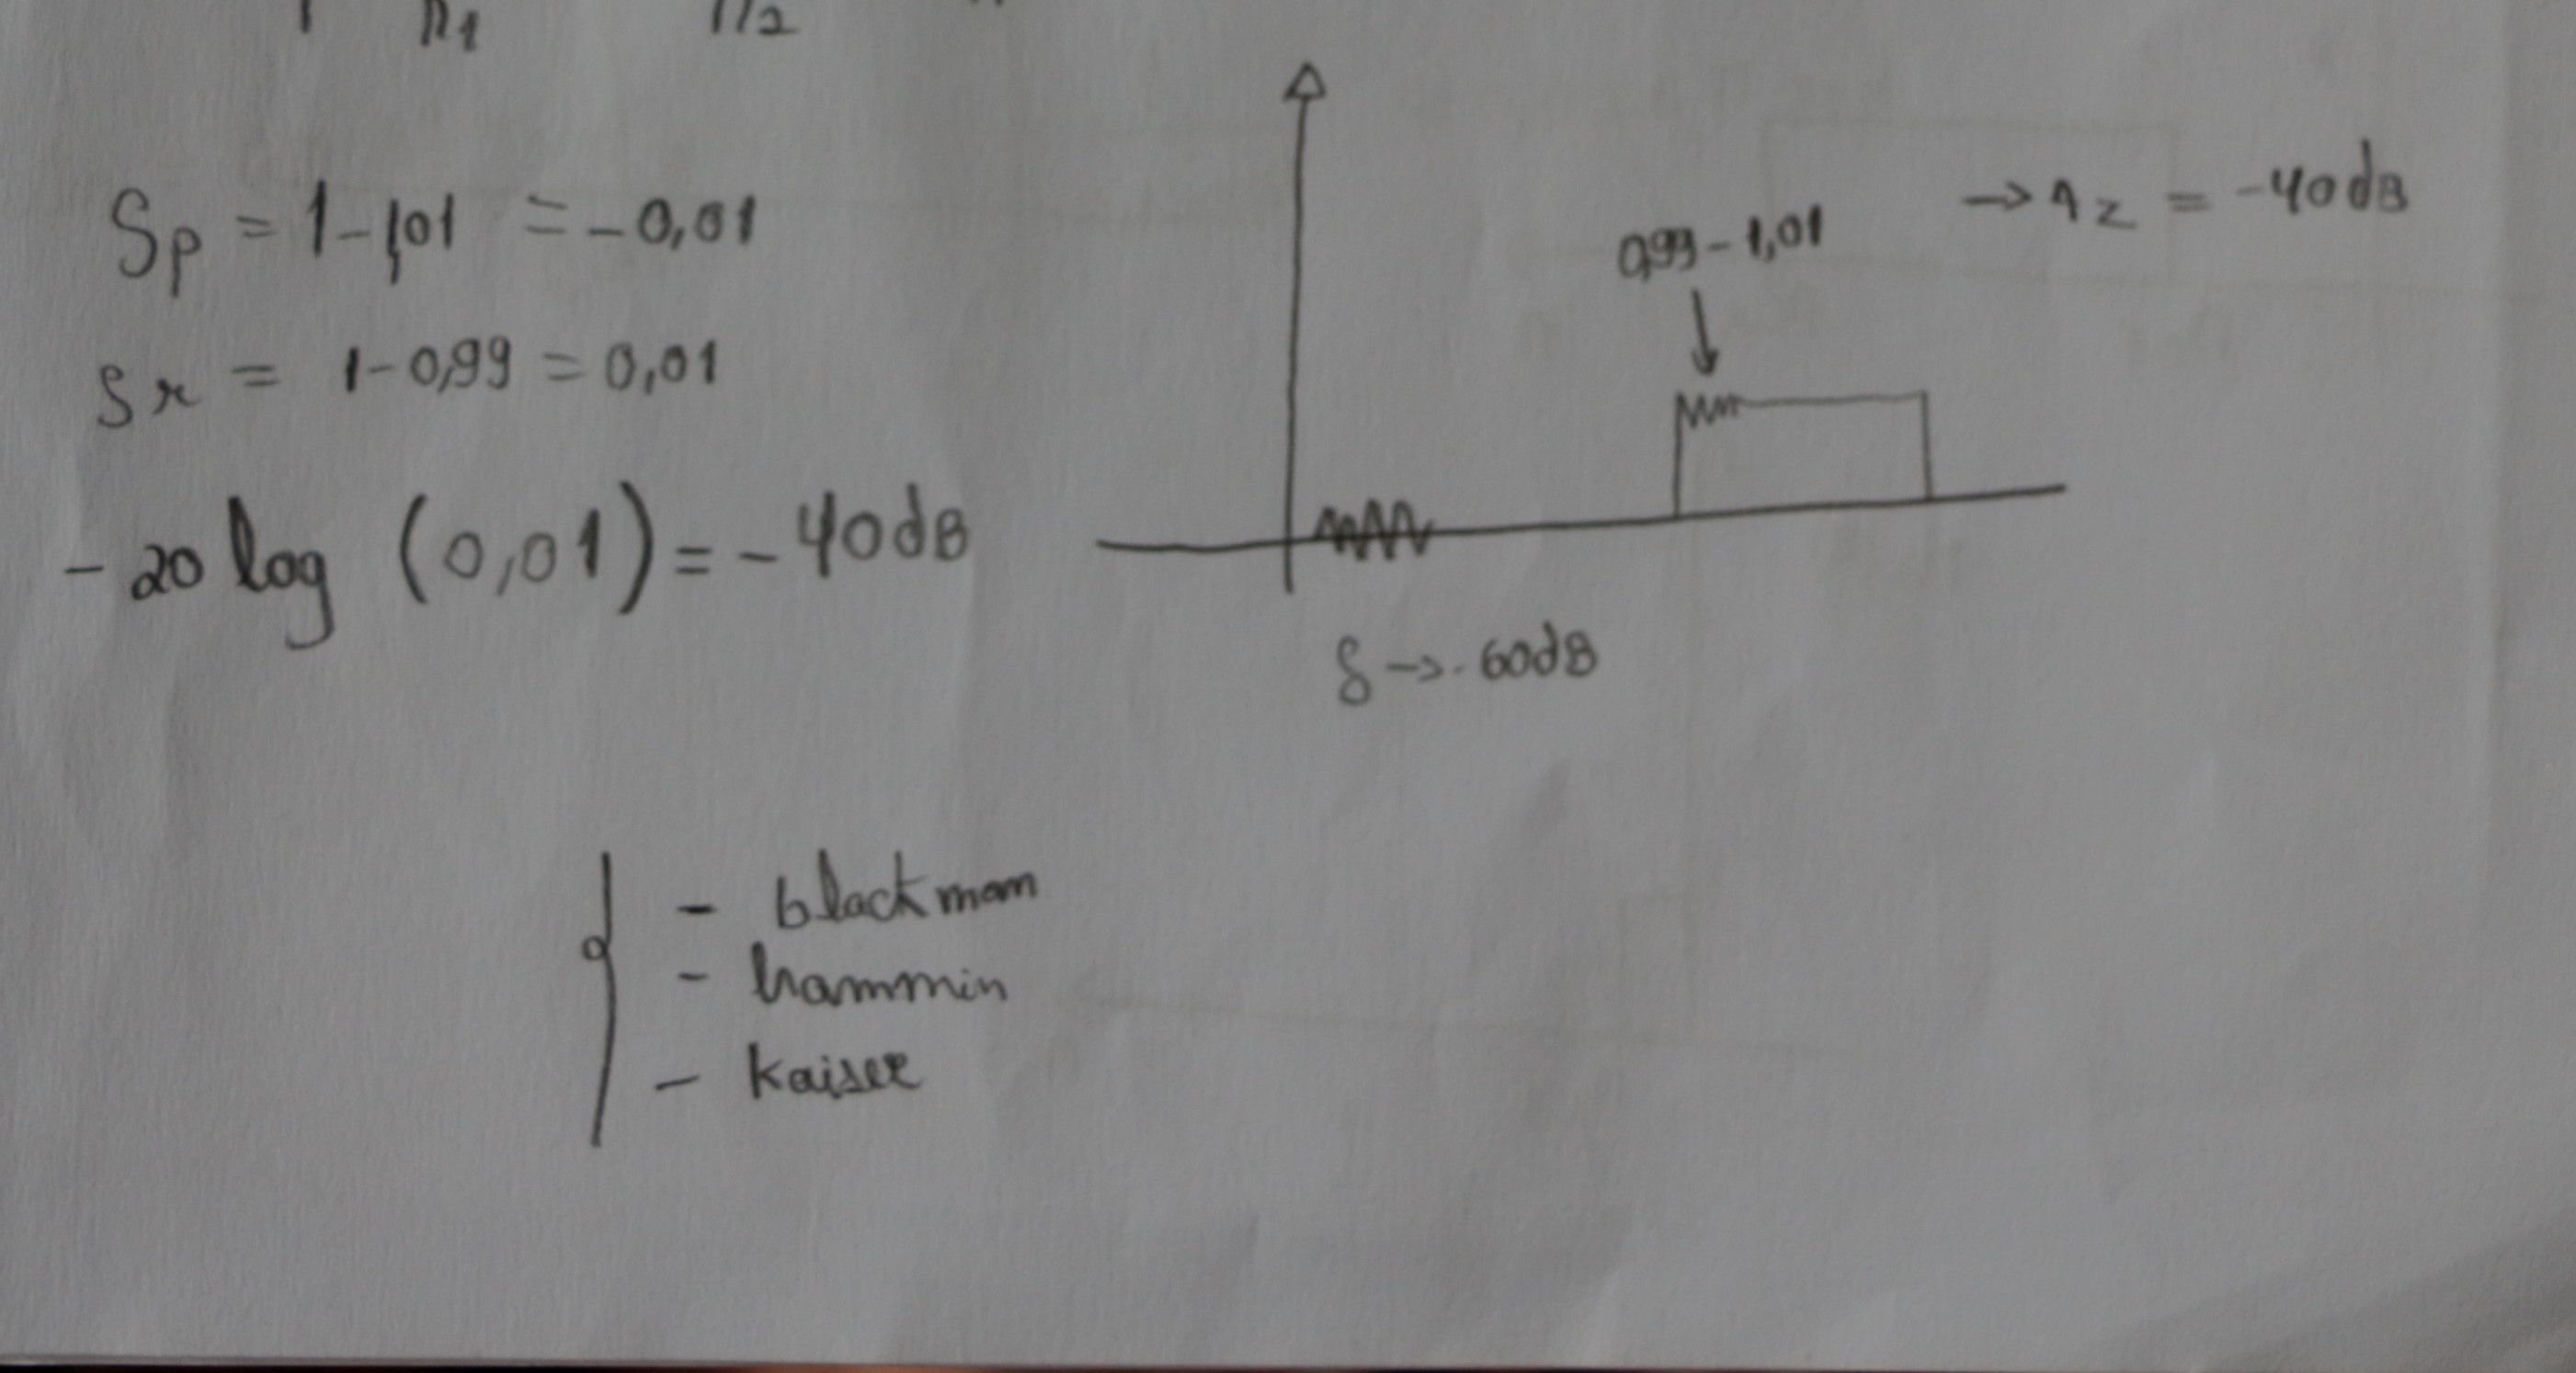 n1 n2
Sp = 1-1,01 = -0,01
Sr = 1-0,99 = 0,01
-20 log (0,01) = -40dB
0,99-1,01 → Az = -40dB
δ → -60dB
- blackmam
- hammin
- kaiser